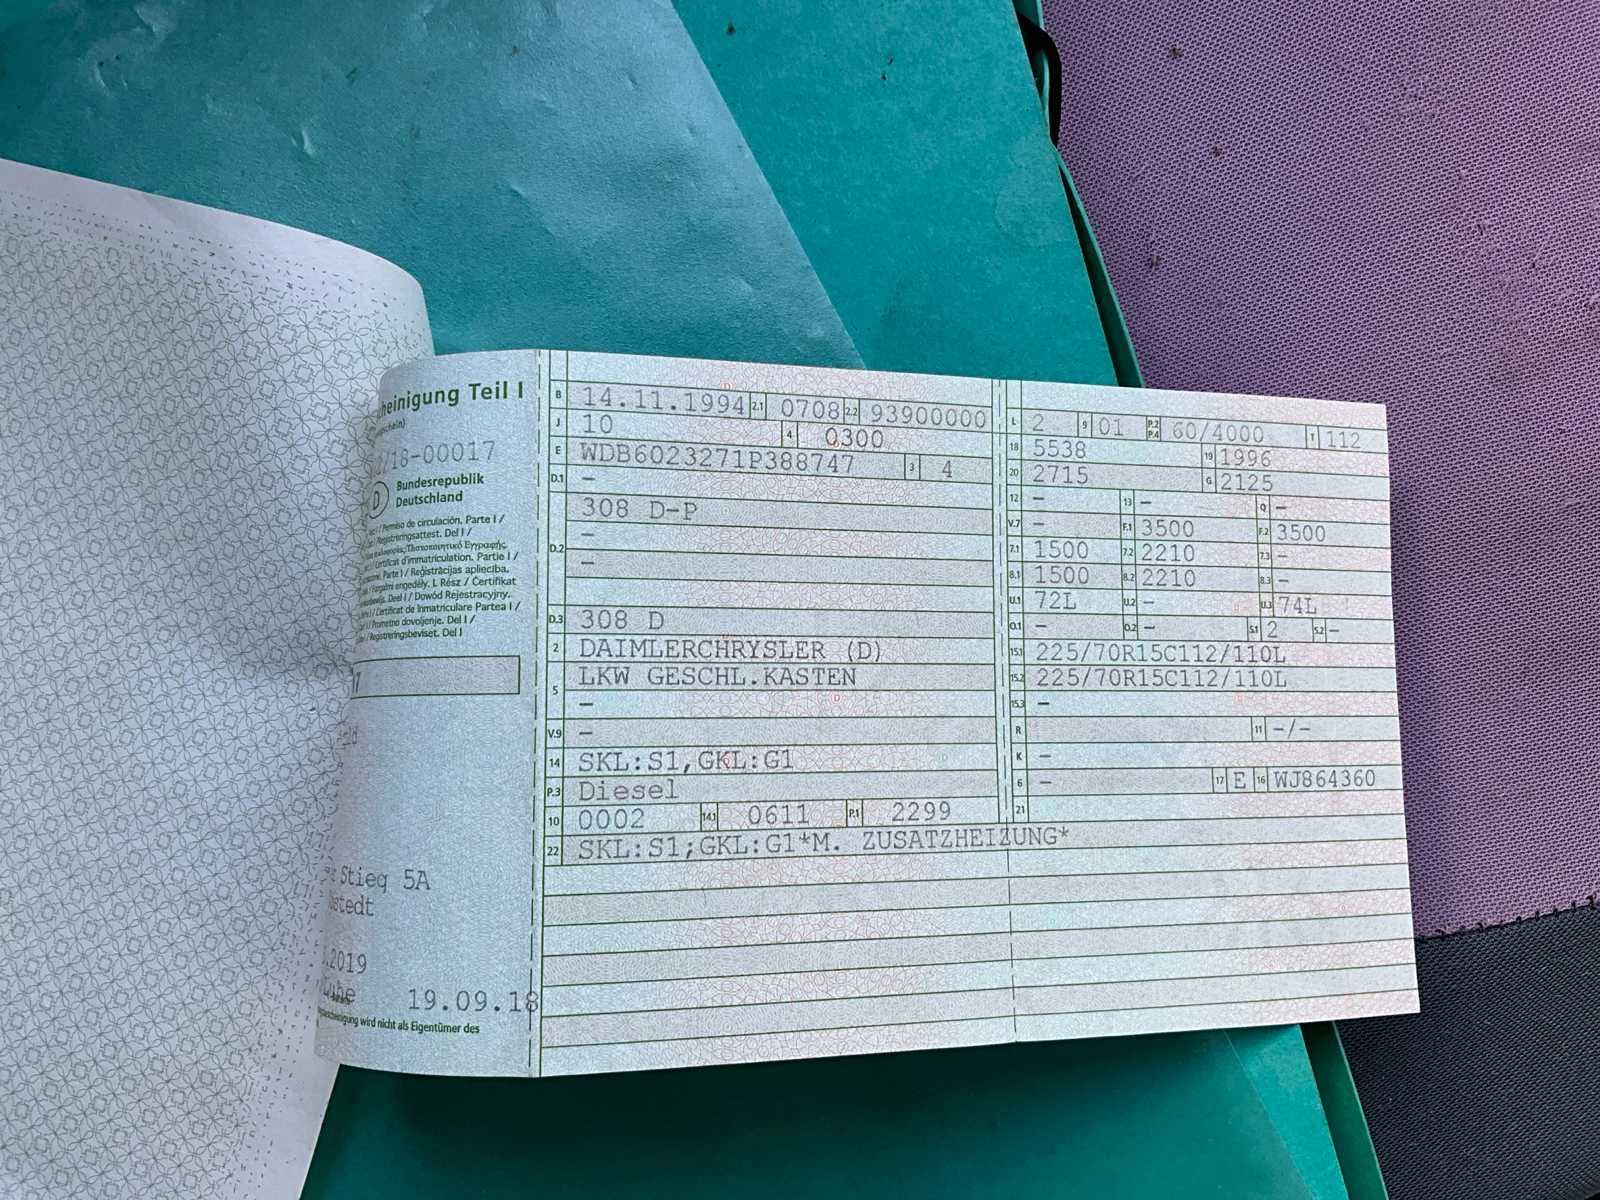 heinigung Teil I
/18-00017
D
Bundesrepublik
Deutschland
Permiso de circulación. Parte I /
Registreringsattest. Del I /
Πιστοποιητικό Εγγραφής
Certificat d'immatriculation. Partie I /
Parte I / Reģistrācijas apliecība.
Forgalmi engedély. I. Rész / Ċertifikat
Deel I / Dowód Rejestracyjny.
Certificat de Înmatriculare Partea I /
Prometno dovoljenje. Del I /
Registreringsbeviset. Del I
7
ld
Stieg 5A
stedt
.2019
19.09.18
wird nicht als Eigentümer des
B 14.11.1994 2.1 0708 2.2 93900000
J 10 4 0300
E WDB6023271P388747 3 4
D.1 –
D.2 308 D-P
–
–
D.3 308 D
2 DAIMLERCHRYSLER (D)
5 LKW GESCHL.KASTEN
–
V.9 –
14 SKL:S1,GKL:G1
P.3 Diesel
10 0002 14.1 0611 P.1 2299
22 SKL:S1;GKL:G1*M. ZUSATZHEIZUNG*
L 2 9 01 P.2 P.4 60/4000 T 112
18 5538 19 1996
20 2715 G 2125
12 – 13 – Q –
V.7 – F.1 3500 F.2 3500
7.1 1500 7.2 2210 7.3 –
8.1 1500 8.2 2210 8.3 –
U.1 72L U.2 – U.3 74L
O.1 – O.2 – S.1 2 S.2 –
15.1 225/70R15C112/110L
15.2 225/70R15C112/110L
15.3 –
R 11 –/–
K –
6 – 17 E 16 WJ864360
21